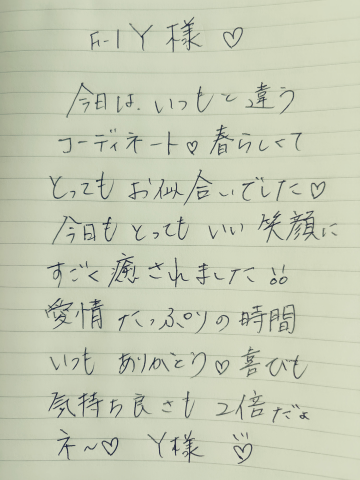 Y様♡
今日は、いつもと違う
コーディネート♡春らしくて
とっても お似合いでした♡
今日も とっても いい 笑顔に
すごく癒されました!!
愛情 たっぷりの時間
いつも ありがとう♡喜びも
気持ち良さも 2倍だよ
ネ〜♡ Y様 ♡